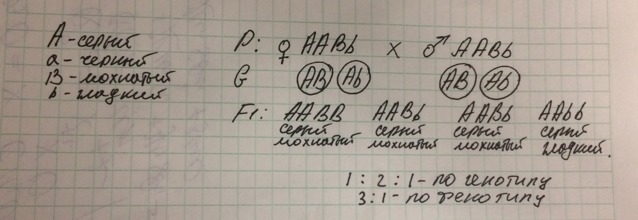 А - серый
а - черный
В - мохнатый
b - гладкий
P: ♀ AABb x ♂ AABb
G AB Ab AB Ab
F1: AABB AABb AABb AAbb
серый серый серый серый
мохнатый мохнатый мохнатый гладкий.
1 : 2 : 1 - по генотипу
3 : 1 - по фенотипу